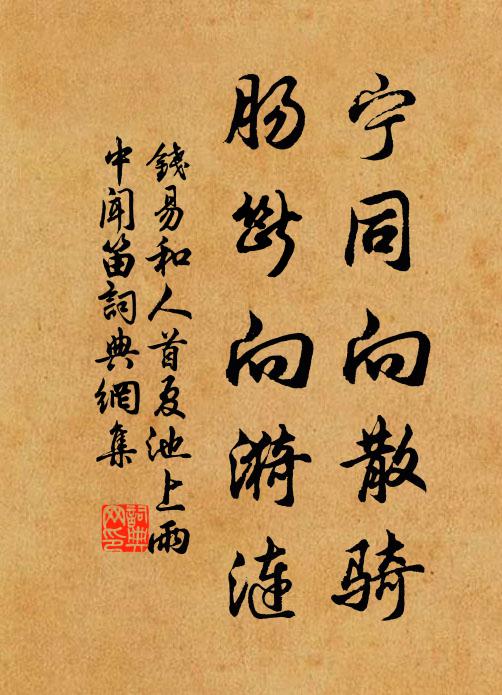 宁同向散骑
肠断向漪涟
錢易和人首夏池上雨
中闻笛詞典網集